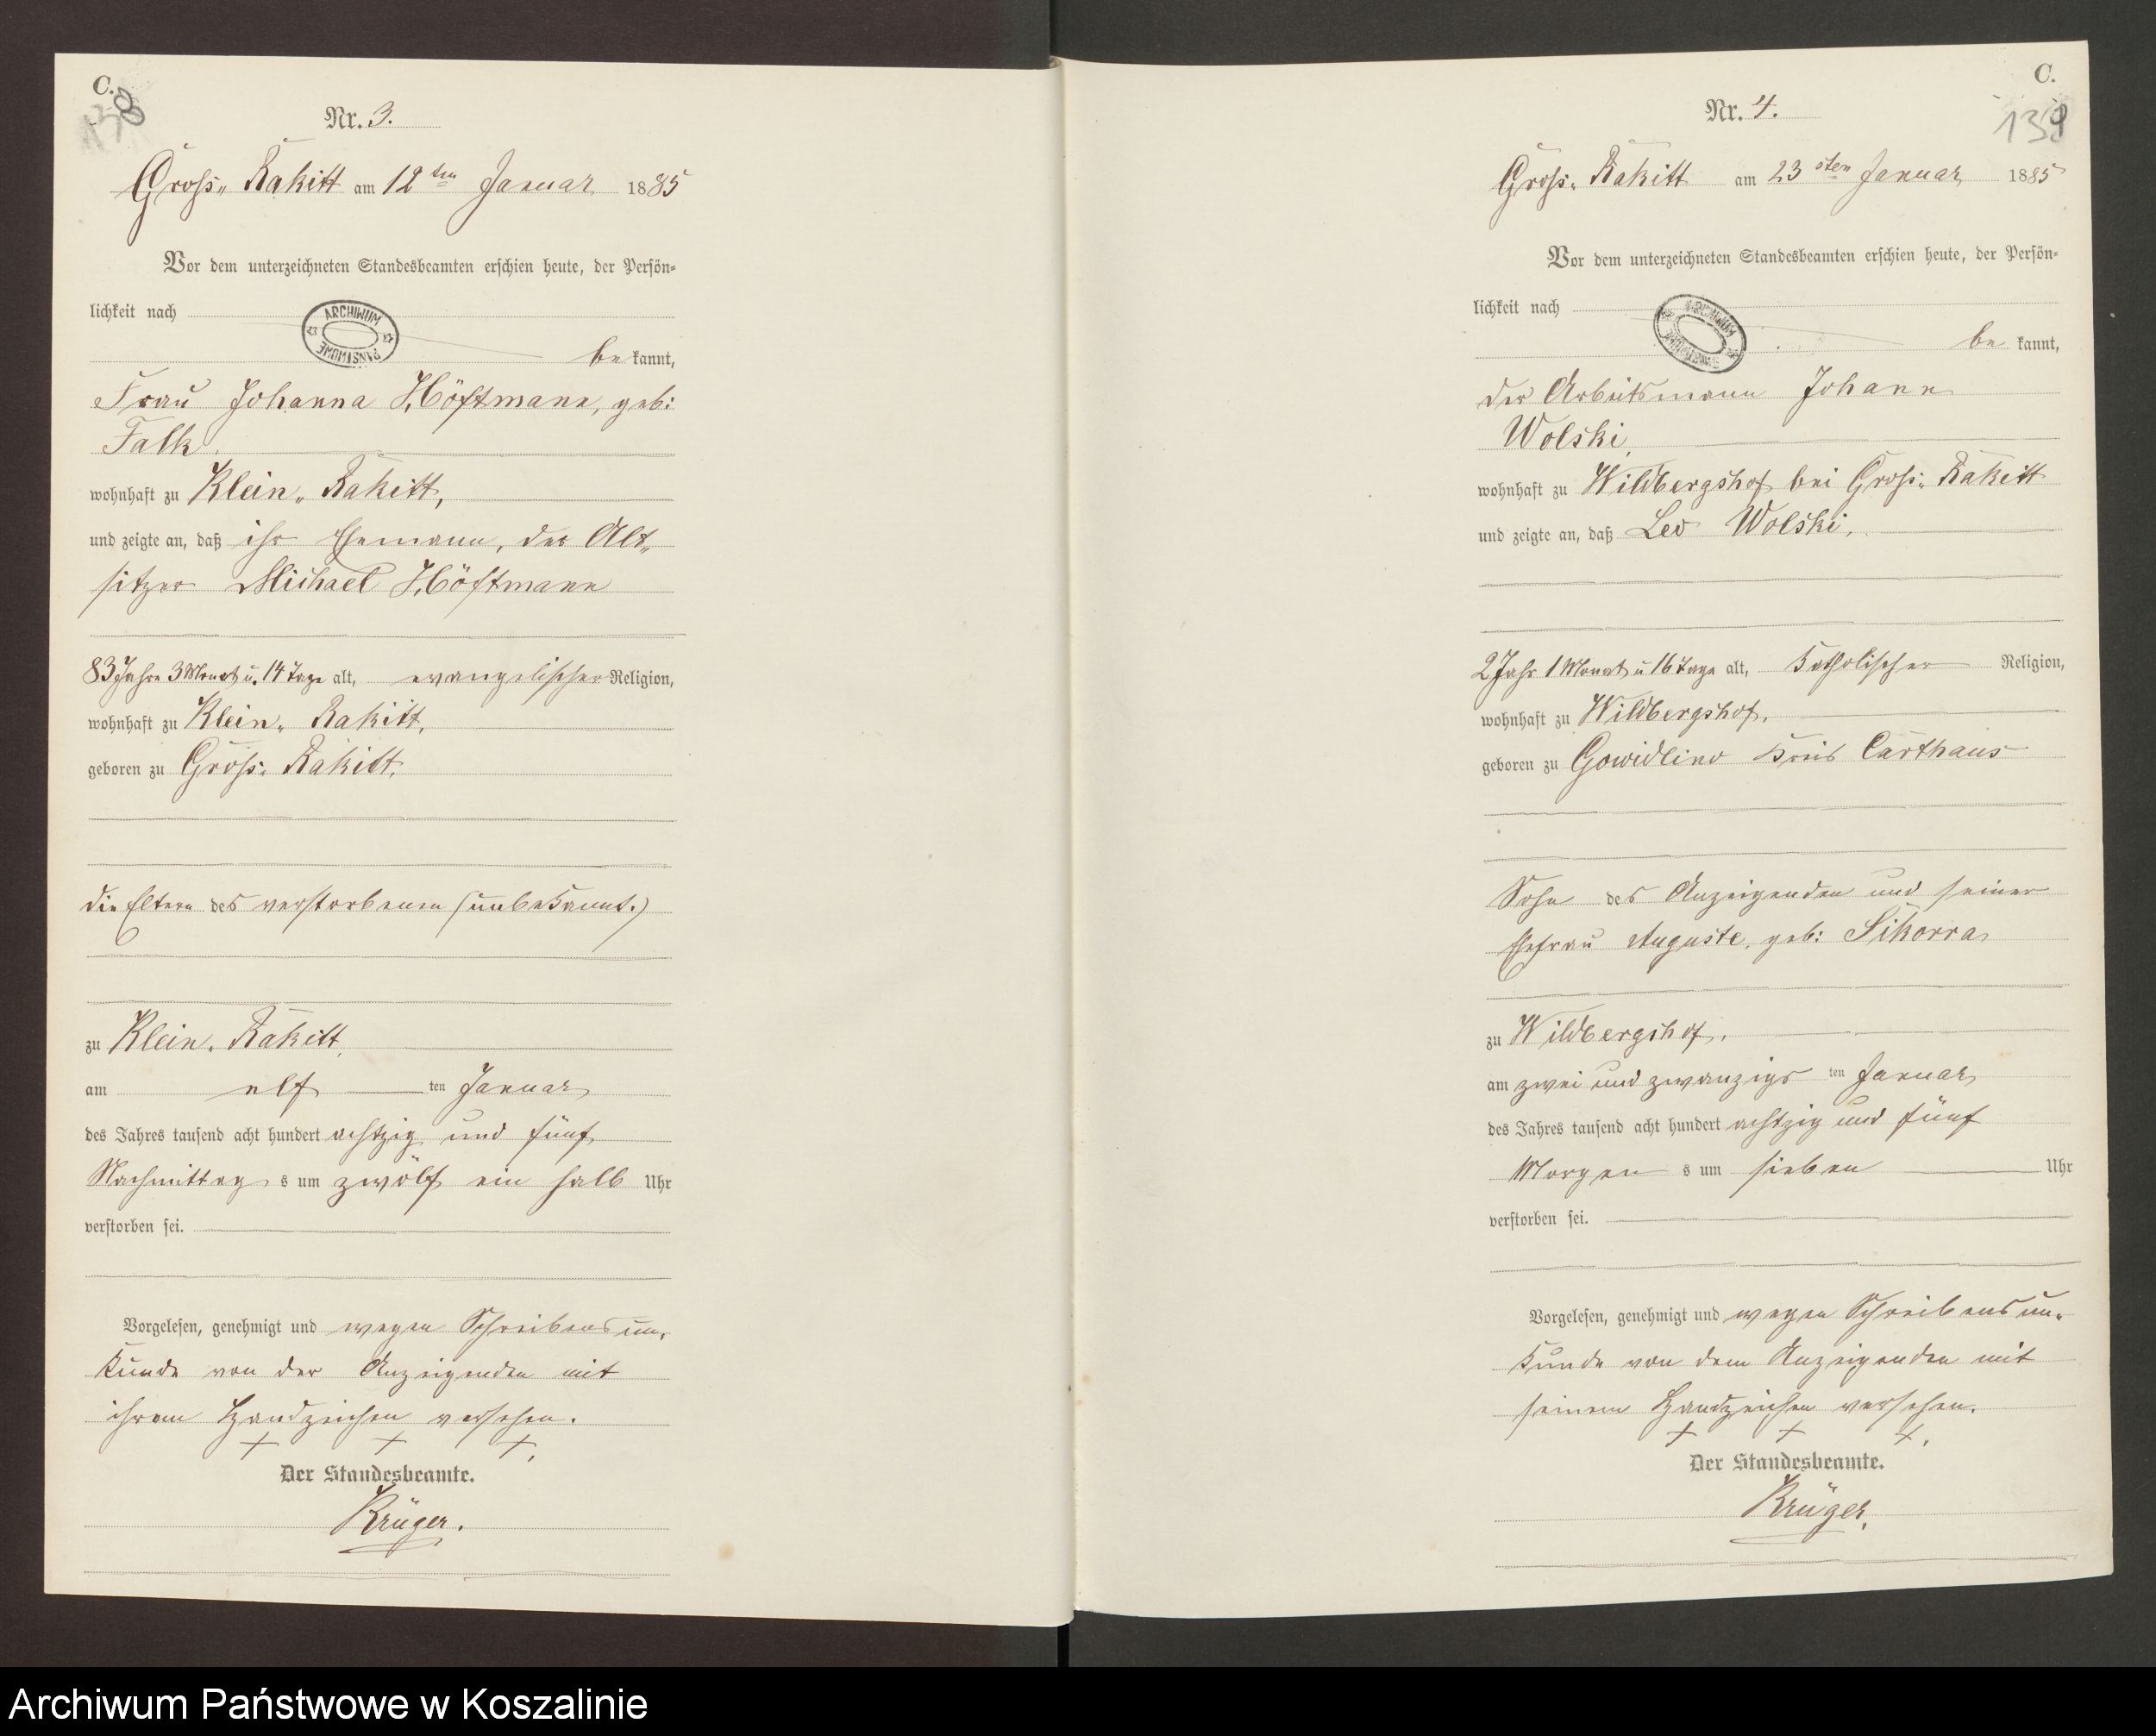 C.
138
Nr. 3.
Groß„ Rakitt am 12ten Januar 1885
Vor dem unterzeichneten Standesbeamten erschien heute, der Persön-
lichkeit nach
ARCHIWUM PAŃSTWOWE
be kannt,
Frau Johanna Höftmann, geb:
Falk.
wohnhaft zu Klein„ Rakitt,
und zeigte an, daß ihr Ehemann, der Alt„
sitzer Michael Höftmann
83 Jahre 3 Monat u. 14 Tage alt, evangelischer Religion,
wohnhaft zu Klein„ Rakitt,
geboren zu Groß„ Rakitt,
die Eltern des verstorbenen (unbekannt.)
zu Klein„ Rakitt,
am elf ten Januar
des Jahres tausend acht hundert achtzig und fünf
Nachmittag s um zwölf ein halb Uhr
verstorben sei.
Vorgelesen, genehmigt und wegen Schreibensun„
kunde von der Anzeigenden mit
ihrem Handzeichen versehen.
+ + +.
Der Standesbeamte.
Krüger.
C.
139
Nr. 4.
Groß„ Rakitt am 23sten Januar 1885
Vor dem unterzeichneten Standesbeamten erschien heute, der Persön-
lichkeit nach
ARCHIWUM PAŃSTWOWE
be kannt,
der Arbeitsmann Johann
Wolski,
wohnhaft zu Wildbergshof bei Groß„ Rakitt
und zeigte an, daß Leo Wolski,
2 Jahr 1 Monat u 16 Tage alt, katholischer Religion,
wohnhaft zu Wildbergshof,
geboren zu Gowidlino Kreis Carthaus
Sohn des Anzeigenden und seiner
Ehefrau Auguste, geb: Sikorra
zu Wildbergshof,
am zwei und zwanzigs ten Januar
des Jahres tausend acht hundert achtzig und fünf
Morgen s um sieben Uhr
verstorben sei.
Vorgelesen, genehmigt und wegen Schreibensun„
kunde von dem Anzeigenden mit
seinem Handzeichen versehen.
+ + +.
Der Standesbeamte.
Krüger.
Archiwum Państwowe w Koszalinie